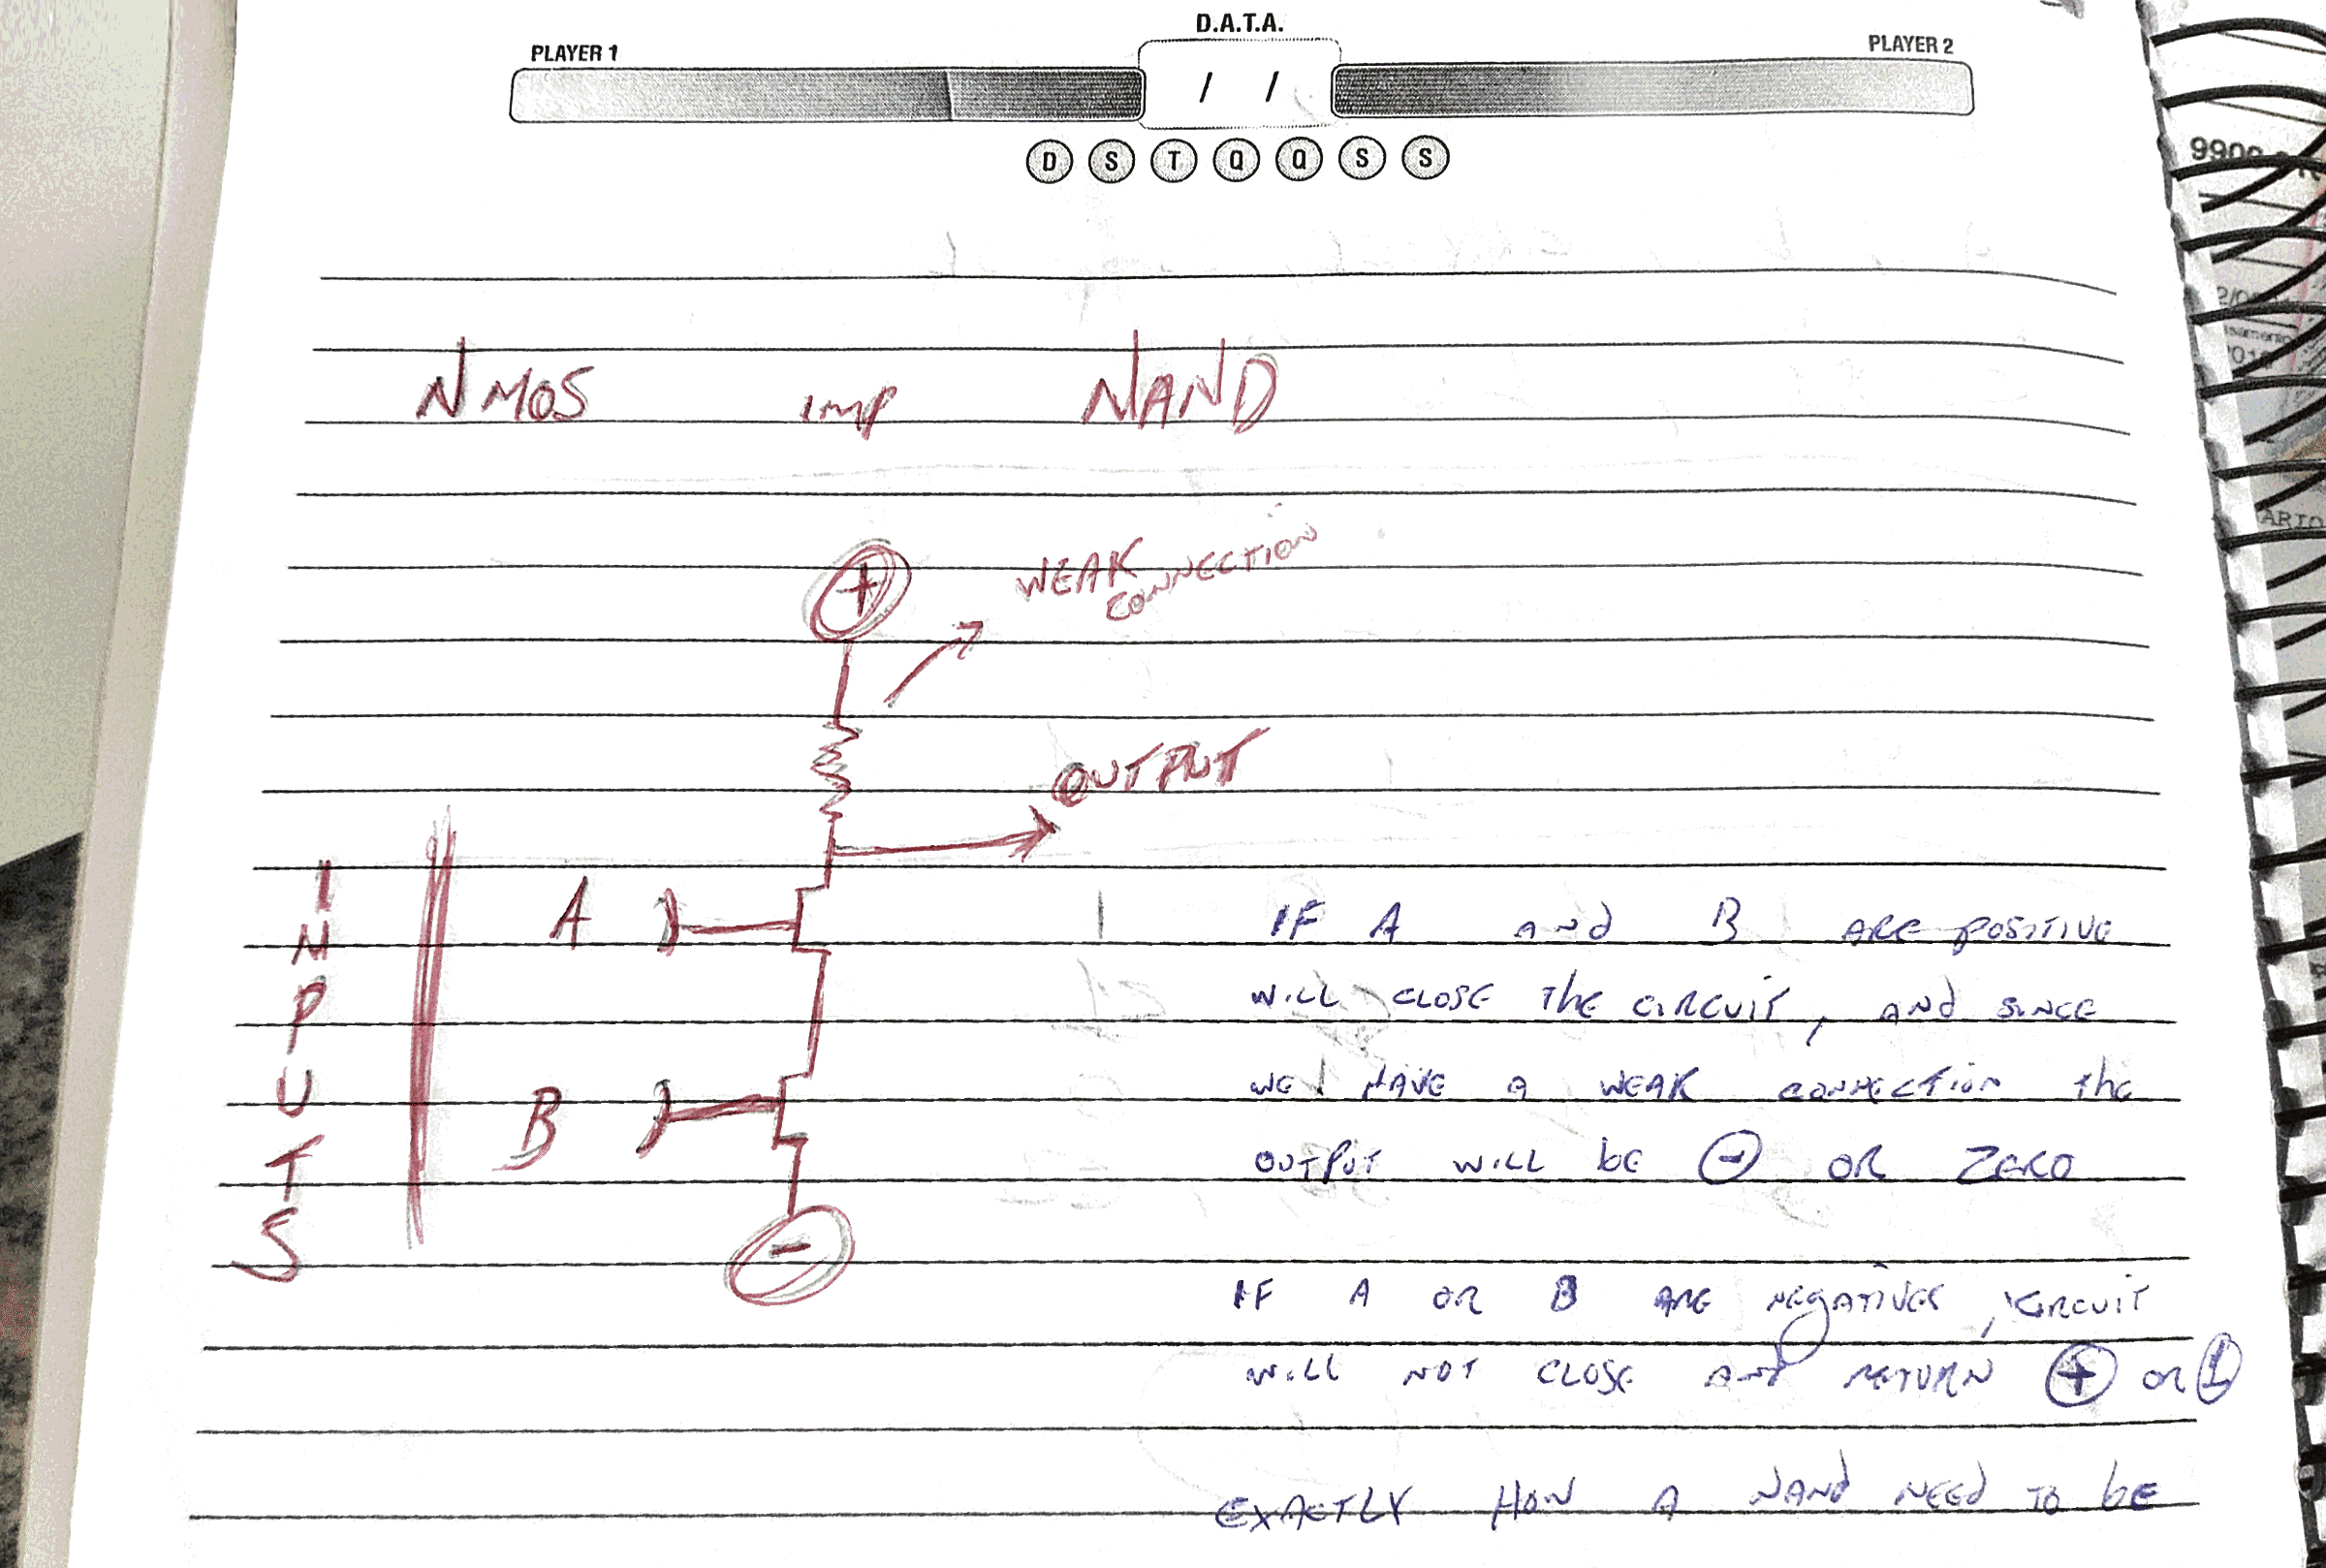 D.A.T.A.
PLAYER 1
PLAYER 2
/ /
D S T Q Q S S
NMOS IMP NAND
+
WEAK
CONNECTION
OUTPUT
INPUTS
A
B
-
IF A and B ARE POSITIVE
WILL CLOSE The CIRCUIT, AND SINCE
WE HAVE A WEAK CONNECTION The
OUTPUT WILL bE - OR ZERO
IF A OR B ARE NEGATIVES, CIRCUIT
WILL NOT CLOSE And RETURN + OR 1
EXACTLY HOW A NANd NEEd TO bE
9900